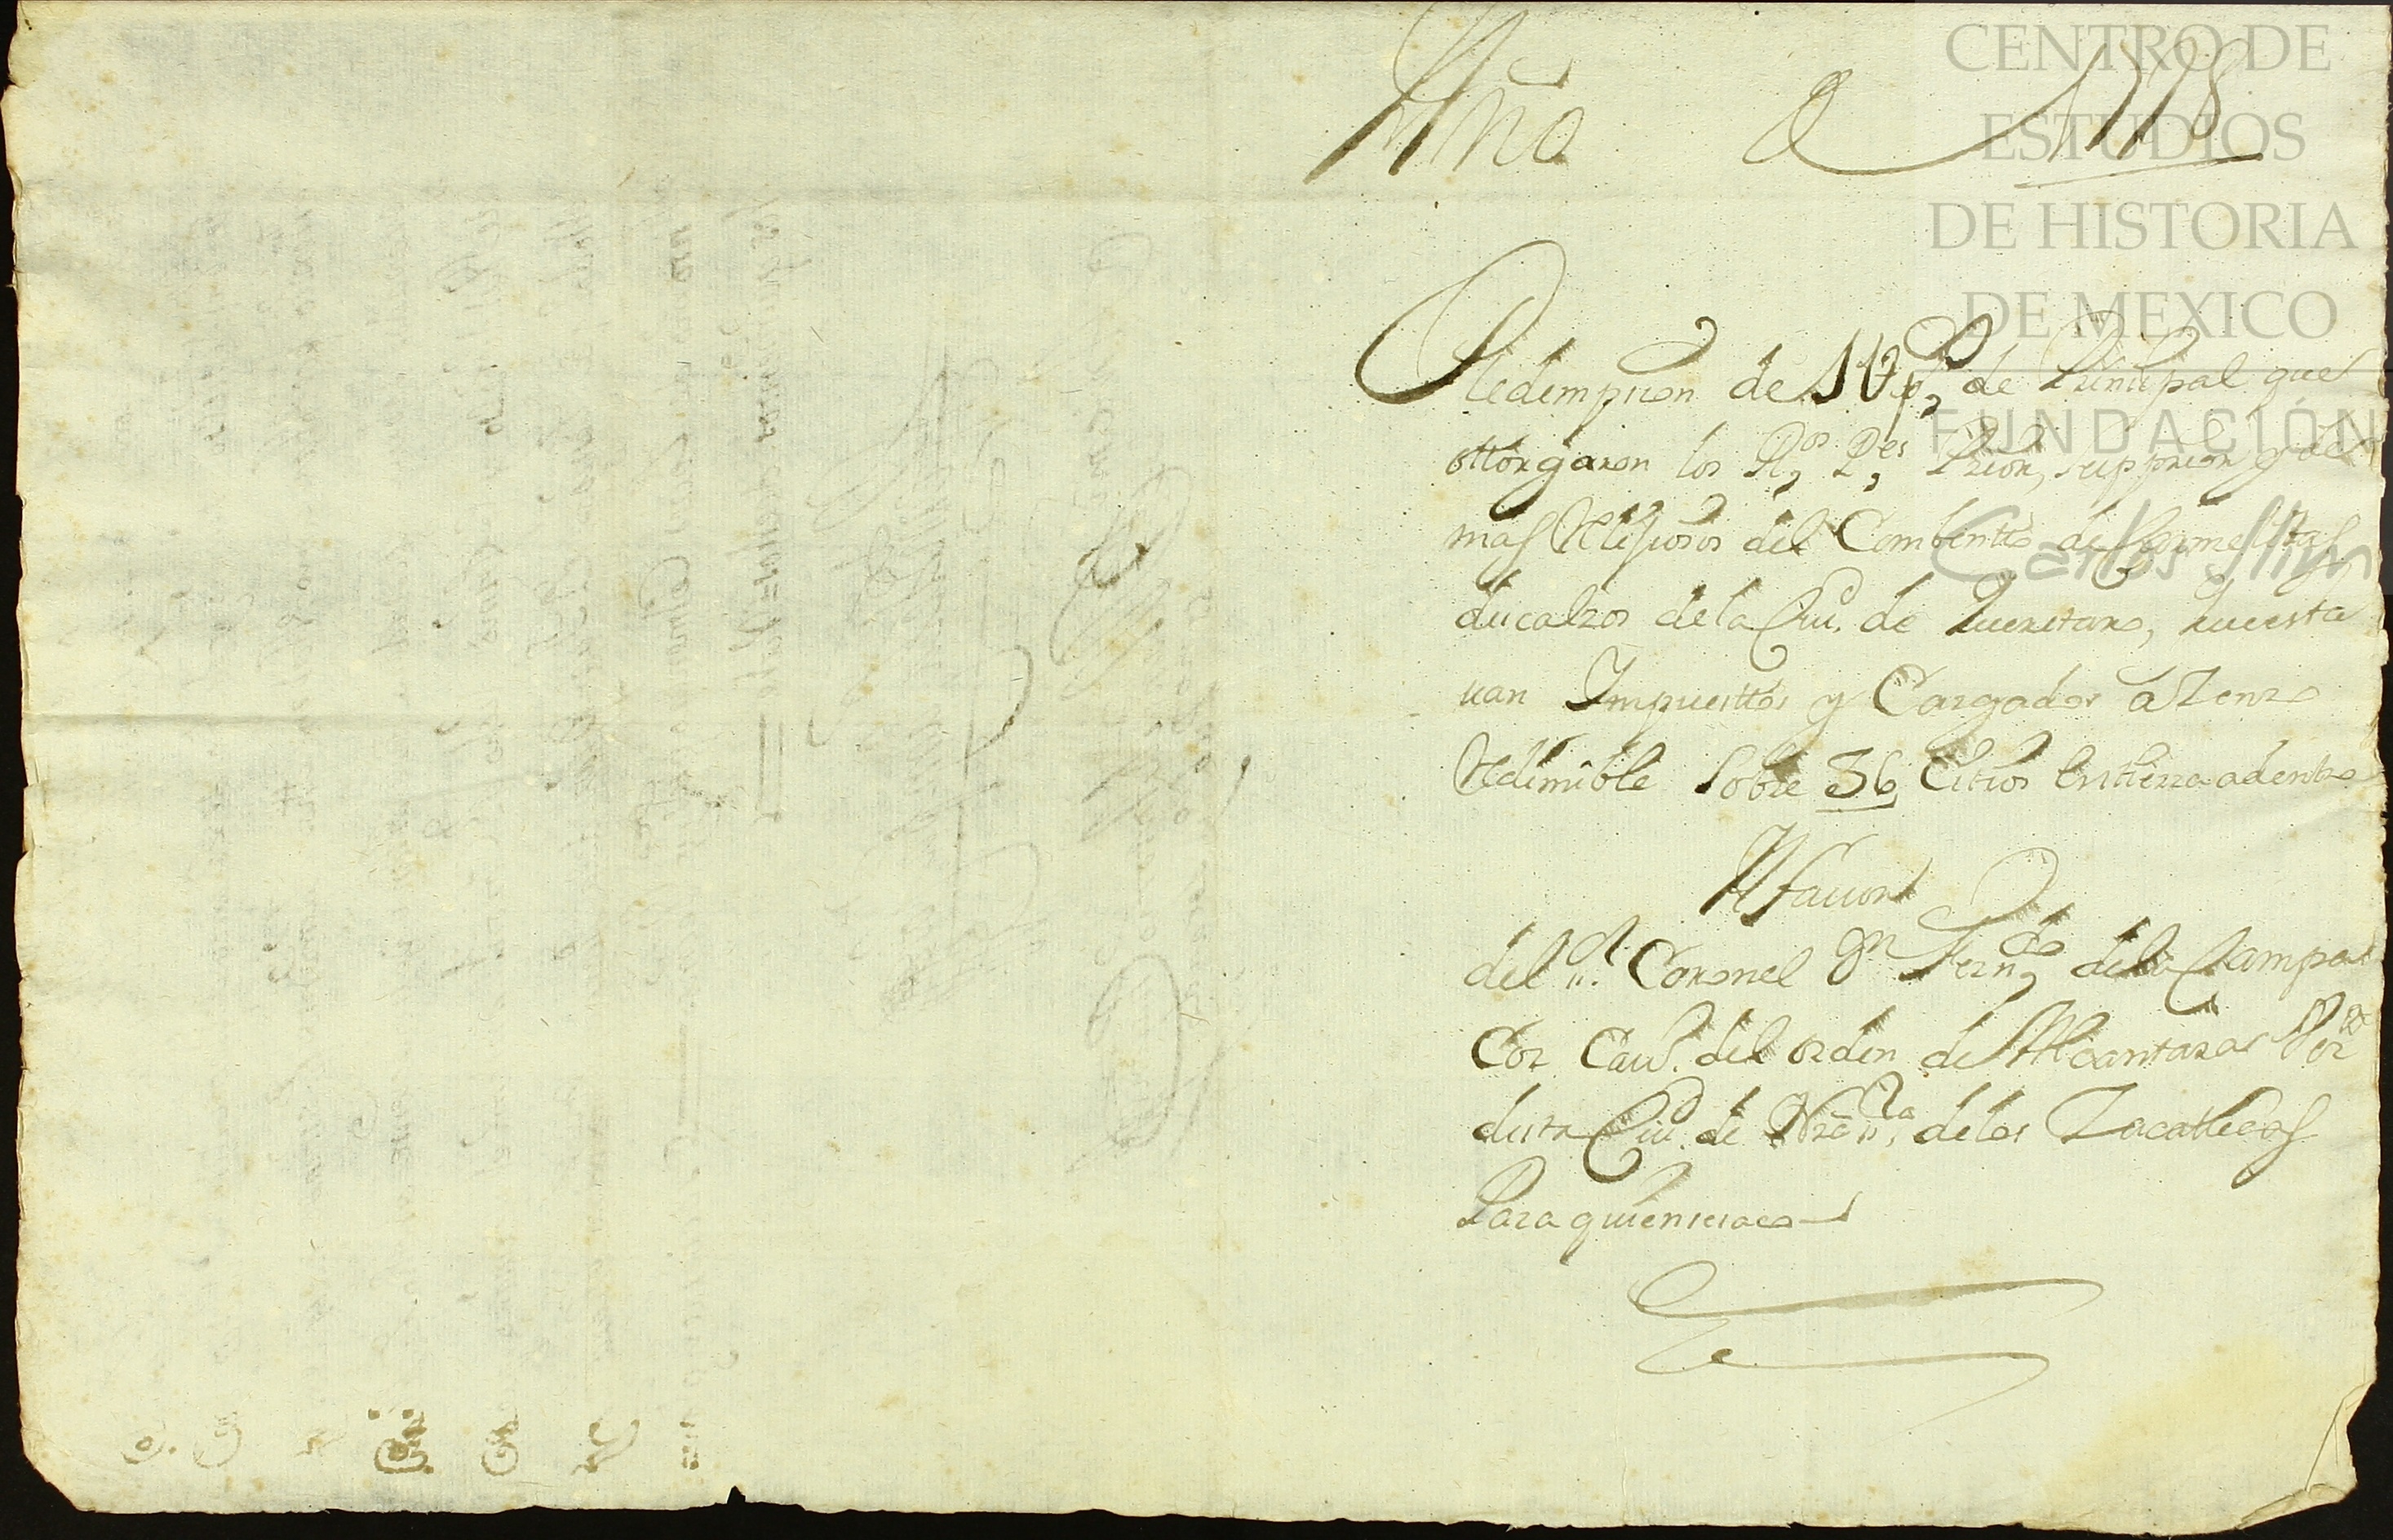 CENTRO DE
ESTUDIOS
DE HISTORIA
DE MEXICO
FUNDACIÓN
Carlos Slim
Año de 1718
Redempcion de 1U ps, de Principal que
ottorgaron los Rs, Pes, Prior, supprior y de
mas Religiosos del Combentto de Carmelitas
descalzos de la Ciud. de Queretaro, que esta
uan Impuesttos y Cargados â Zenzo
Redimible Sobre 36 Citios en tierra adentro
A fauor
del Coronel Dn Ferndo, de la Campa
Coz Cauo. del orden de Alcantara Vezo
desta Ciud. de Nrâ Sra, de los Zacattecas
Para quien